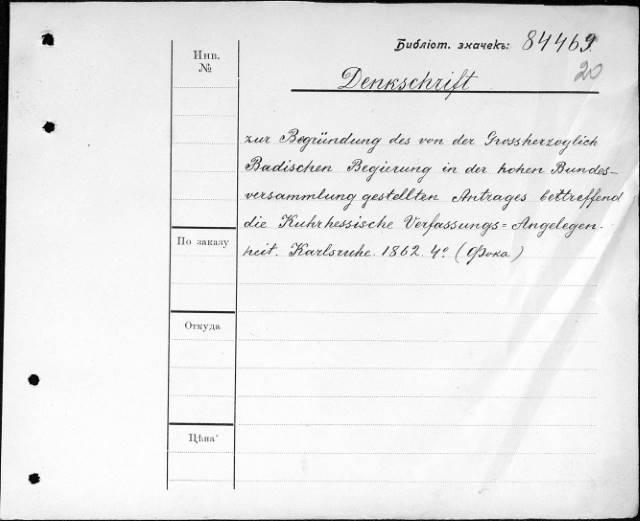 Библіот. значекъ: 84469.
20
Инв.
№
Denkschrift
zur Begründung des von der Grossherzoglich
Badischen Begierung in der hohen Bundes-
versammlung gestellten Antrages bettreffend
die Kuhrhessische Verfassungs=Angelegen-
heit. Karlsruhe. 1862. 4º (Фока)
По заказу
Откуда
Цѣна